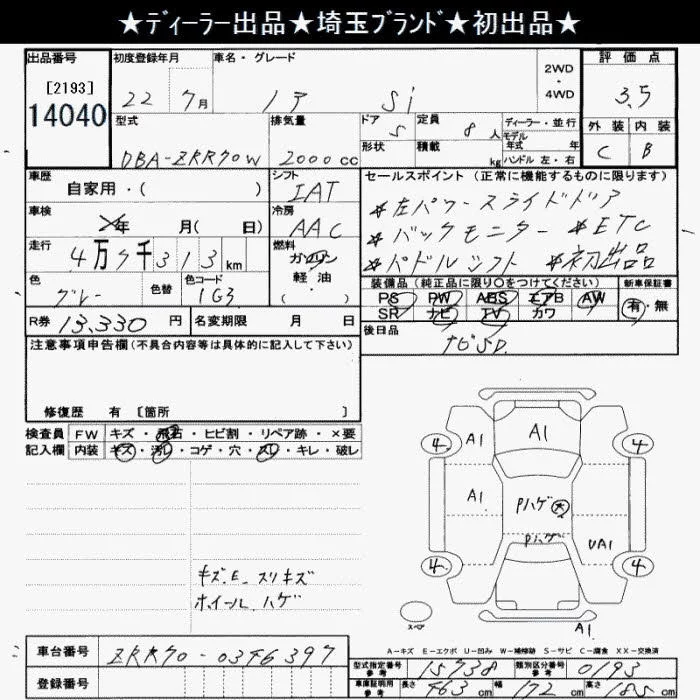 ★ディーラー出品★埼玉ブランド★初出品★
出品番号 初度登録年月 車名・グレード 2WD・4WD 評価点
[2193] 14040 22 7月 ノア Si 3.5
型式 排気量 ドア 定員 ディーラー・並行 外装 内装
DBA-ZRR70W 2000cc 5 8人 モデル年式 年 C B
形状 積載 kg ハンドル 左・右
車歴 自家用・( ) シフト IAT セールスポイント(正常に機能するものに限ります)
車検 年 月( 日) 冷房 AAC *左パワースライドドア
*バックモニター *ETC
走行 4万7千313km 燃料 ガソリン・軽油・( ) *パドルシフト *初出品
色 グレー 色替 色コード 1G3 装備品(純正品に限り○をつけてください) 新車保証書
PS PW ABS エアB AW 有・無
R券 13,330円 名変期限 月 日 SR ナビ TV カワ
注意事項申告欄(不具合内容等は具体的に記入して下さい) 後日品 ナビSD.
修復歴 有 [箇所 ]
検査員 FW キズ・飛石・ヒビ割・リペア跡・×要
記入欄 内装 キズ・汚れ・コゲ・穴・スレ・キレ・破レ
4 A1 A1 4
A1 Pハゲ 大
Pハゲ UA1
4 4
キズ.E.スリキズ
ホイール.ハゲ
スペア A1.
A-キズ E-エクボ U-凹み W-補修跡 S-サビ C-腐食 XX-交換済
車台番号 ZRR70-0346397 型式指定番号 参考 15738 類別区分番号 参考 0193
登録番号 車庫証明用 参考 長さ 463cm 幅 172cm 高さ 185cm